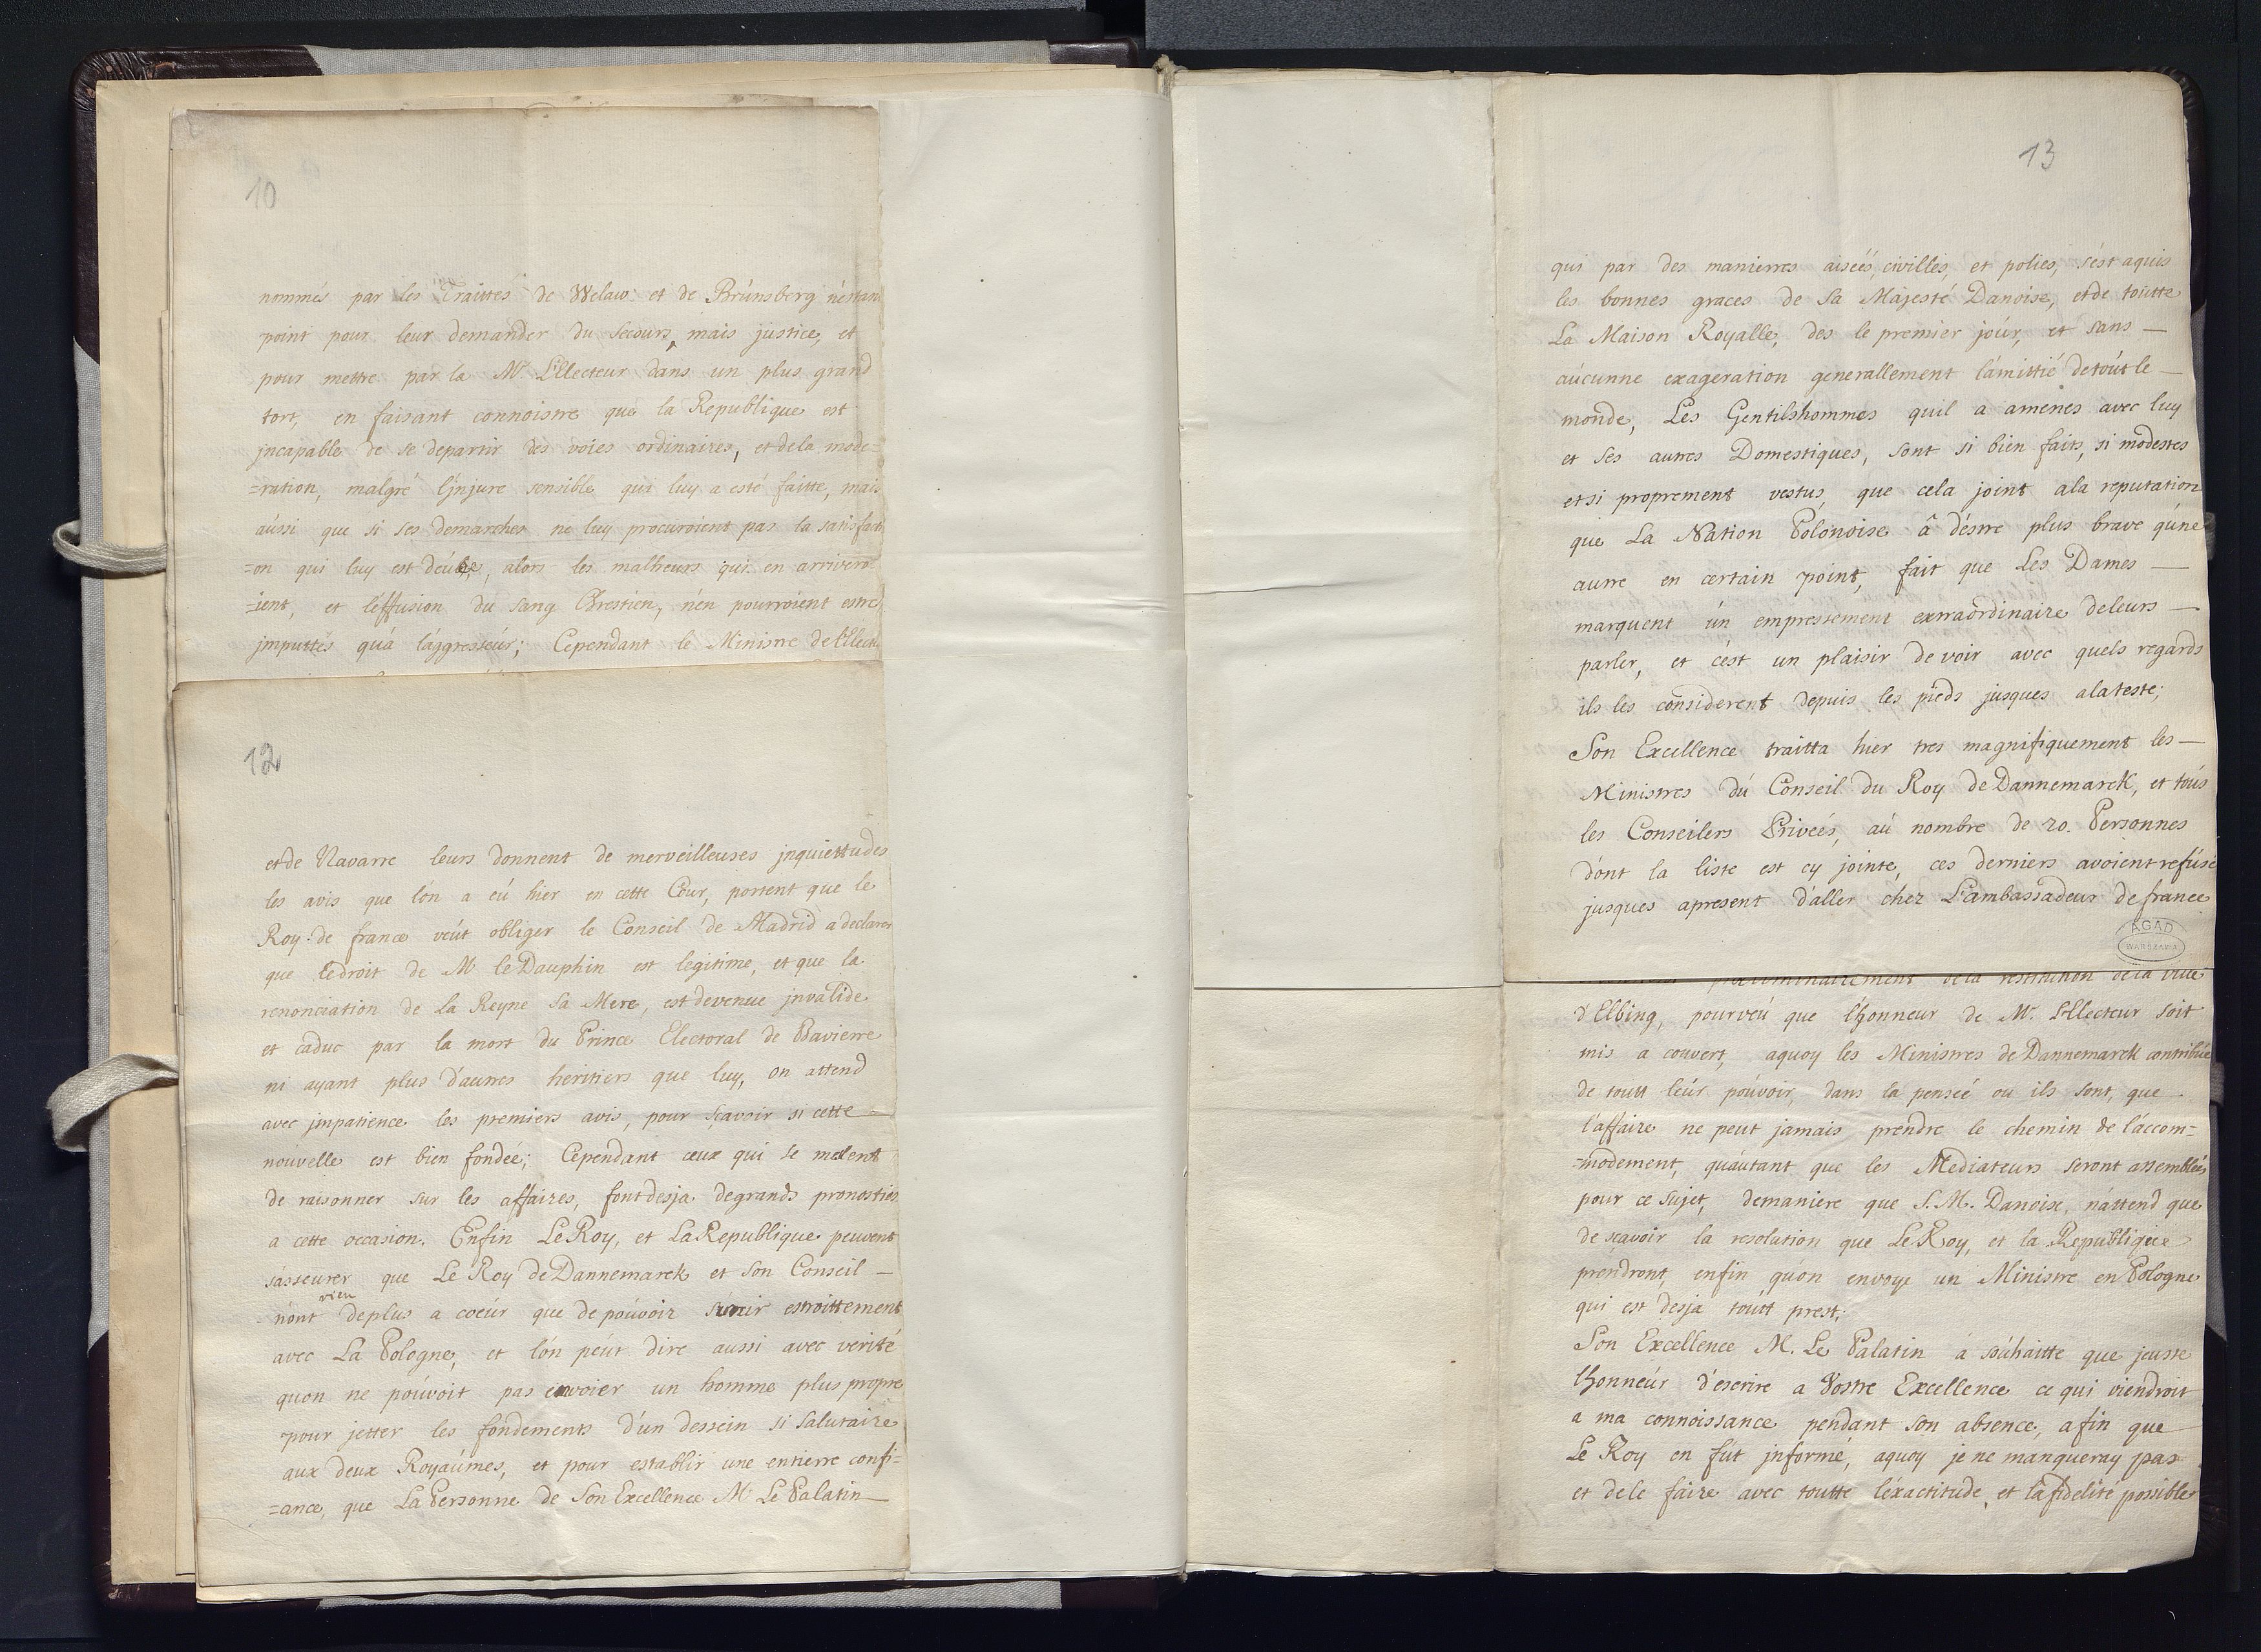 10
nommés par les Traittés de Welaw et de Brúnsberg n'estan
point pour leur demander du secours, mais justice, et
pour mettre par la Mr. L'Electeur dans un plus grand
tort, en faisant connoistre que la Republique est
jncapable de se departir des voies ordinaires, et dela mode=
=ration, malgré l'jnjure sensible qui luy a esté faitte, mais
aússi que si ses demarches ne luy procuroient pas la satisfacti
=on qui luy est deúe, alors les malheurs qui en arrivero
=ient, et l'effusion du sang Chrestien, n'en pourroient estre
jmputtés qu'á l'aggresseúr; Cependant le Ministre de l'Elect
12
et de Navarre leurs donnent de merveilleuses jnquiettudes
les avis que l'on a eú hier en cette Cour, portent que le
Roy de france veút obliger le Conseil de Madrid a declarer
que le droit de M. le Dauphin est legitime, et que la
renonciation de la Reyne sa Mere, est devenue jnvalide
et caduc par la mort du Prince Electoral de Bavierre
ni ayant plus d'autres heritiers que luy, on attend
avec jmpatience les premiers avis, pour sçavoir si cette —
nouvelle est bien fondée; Cependant ceux qui se melent
de raisonner sur les affaires, font desja de grands pronostics
a cette occasion. Enfin Le Roy, et La Republique peuvent
s'asseurer que Le Roy de Dannemarck et son Conseil —
n'ont rien de plus a coeúr que de poúvoir s'unir estroittement
avec La Pologne, et l'on peút dire aussi avec verité
quon ne poúvoit pas envoier un homme plus propre
pour jetter les fondements d'un dessein si salutaire
aux deux Royaúmes, et pour establir une entierre confi=
=ance, que La Personne de Son Excellence Mr Le Palatin —
13
qui par des manierres aiseés, civilles, et polies, s'est aquis
les bonnes graces de Sa Majesté Danoise, et de toutte
La Maison Royalle, des le premier joúr, et sans —
aúcunne exageration generallement l'amittié de toút le —
monde, Les Gentilshommes quil a amenes avec luy
et ses autres Domestiques, sont si bien faits, si modestes
et si proprement vestus, que cela joint a la reputation
que La Nation Polonoise â d'éstre plus brave qu'une
autre en certain point, fait que Les Dames —
marquent ún empressement extraordinaire de leurs —
parler, et c'est un plaisir de voir avec quels regards
ils les considerent depuis les pieds jusques a la teste;
Son Excellence traitta hier tres magnifiquement les —
Ministres dú Conseil du Roy de Dannemarck, et toús
les Conseilers Priveés, aú nombre de 20. Personnes
d'ont la liste est cy jointe, ces derniers avoient refúsé
jusques apresent d'aller chez L'ambassadeur de france
AGAD
WARSZAWA
de la restitution de la ville
d'Elbing, pourveú que l'honneur de Mr. L'Electeur soit
mis a couvert, aquoy les Ministres de Dannemarck contribúe
de toutt leúr poúvoir, dans la penseé ou ils sont, que
l'affaire ne peut jamais prendre le chemin de l'áccom=
=modement, qu'aútant que les Mediateurs seront assemblés
pour ce sujet, demaniere que S. M. Danoise, n'attend que
de sçavoir la resolution que Le Roy, et la Republique
prendront, enfin qu'on envoye un Ministre en Pologne
qui est desja toútt prest;
Son Excellence M. Le Palatin a soúhaitte que jeusse
l'honneúr d'escrire a Vostre Excellence ce qui viendroit
a ma connoissance pendant son absence, afin que
Le Roy en fut jnformé, aquoy je ne manqueray pas
et de le faire avec toutte l'exactitude, et la fidelité possible